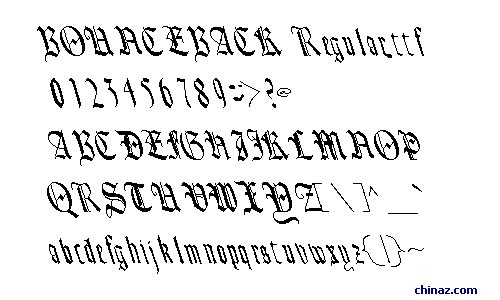 BOUNCEBACK Regular.ttf
0123456789:;>?@
ABCDEFGHIJKLMNOP
QRSTUVWXYZ[\]^_`
abcdefghijklmnopqrstuvwxyz{|}~
chinaz.com